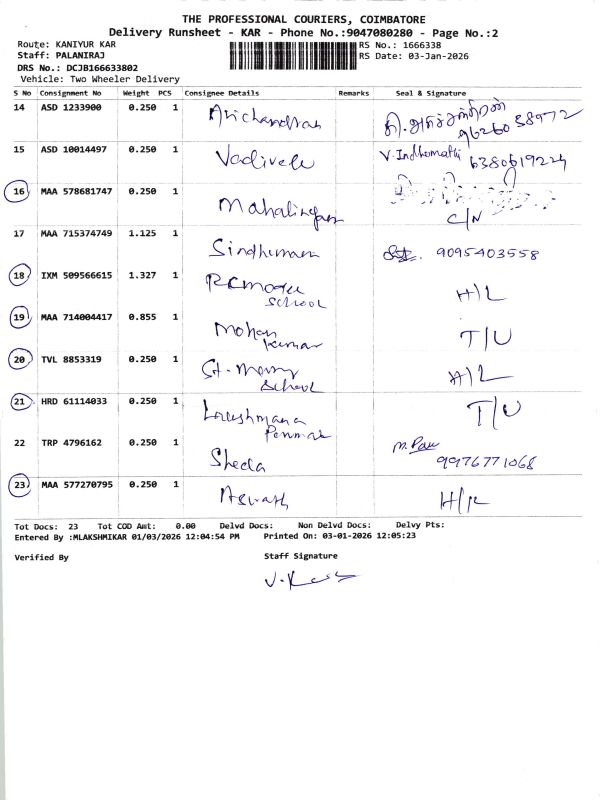 THE PROFESSIONAL COURIERS, COIMBATORE
Delivery Runsheet - KAR - Phone No.:9047080280 - Page No.:2
Route: KANIYUR KAR RS No.: 1666338
Staff: PALANIRAJ RS Date: 03-Jan-2026
DRS No.: DCJB166633802
Vehicle: Two Wheeler Delivery
S No Consignment No Weight PCS Consignee Details Remarks Seal & Signature
14 ASD 1233900 0.250 1 Arichandran
15 ASD 10014497 0.250 1 Vadivelu V. Indhumathi 6380619224
16 MAA 578681747 0.250 1 Mahalingam C/N
17 MAA 715374749 1.125 1 Sindhuman 9095403558
18 IXM 509566615 1.327 1 school H/L
19 MAA 714004417 0.855 1 Mohan kumar T/U
20 TVL 8853319 0.250 1 St. Mary school H/L
21 HRD 61114033 0.250 1 T/U
22 TRP 4796162 0.250 1 Sheela 9976771068
23 MAA 577270795 0.250 1 Aswath
Tot Docs: 23 Tot COD Amt: 0.00 Delvd Docs: Non Delvd Docs: Delvy Pts:
Entered By :MLAKSHMIKAR 01/03/2026 12:04:54 PM Printed On: 03-01-2026 12:05:23
Verified By Staff Signature